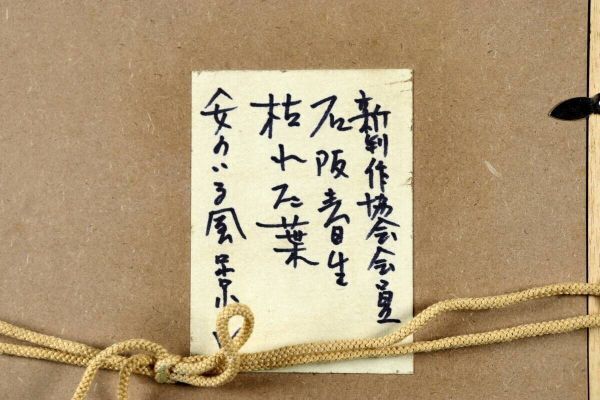 新制作協会会員
石阪春生
枯れた葉
女のいる風景